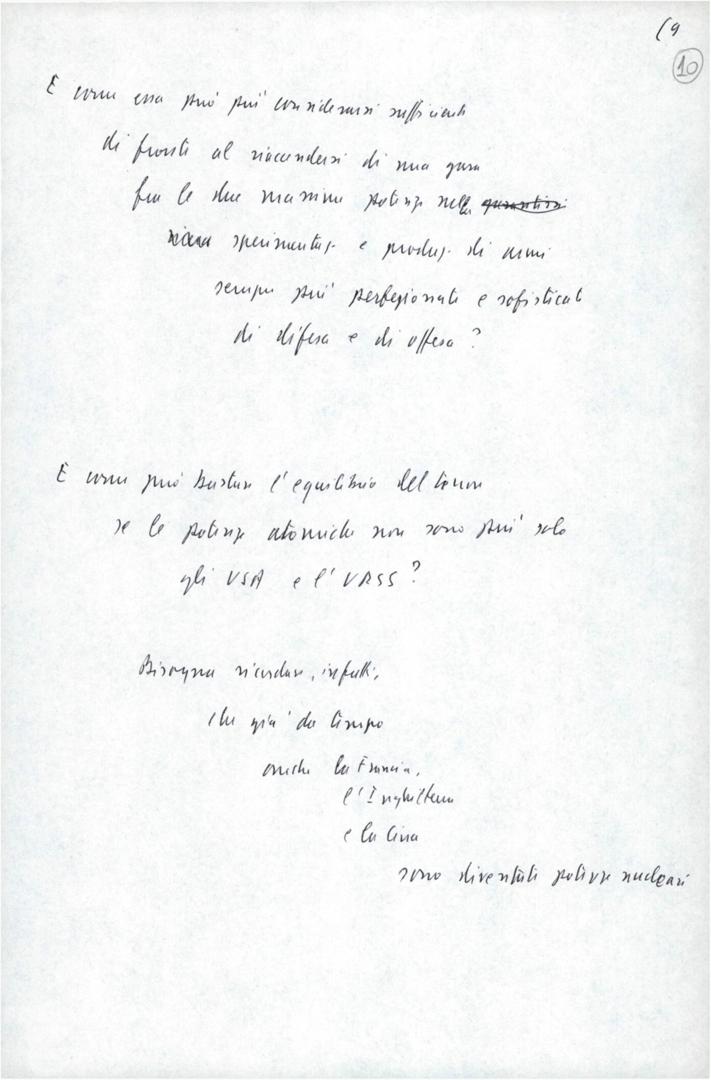 (9
10
E come essa può più considerarsi sufficiente
di fronte al riaccendersi di una gara
fra le due massime potenze nella
ricerca sperimentaz. e produz. di armi
sempre più perfezionate e sofisticate
di difesa e di offesa?
E come può bastare l'equilibrio del terrore
se le potenze atomiche non sono più solo
gli USA e l'URSS?
Bisogna ricordare, infatti,
che già da tempo
anche la Francia,
l'Inghilterra
e la Cina
sono diventate potenze nucleari